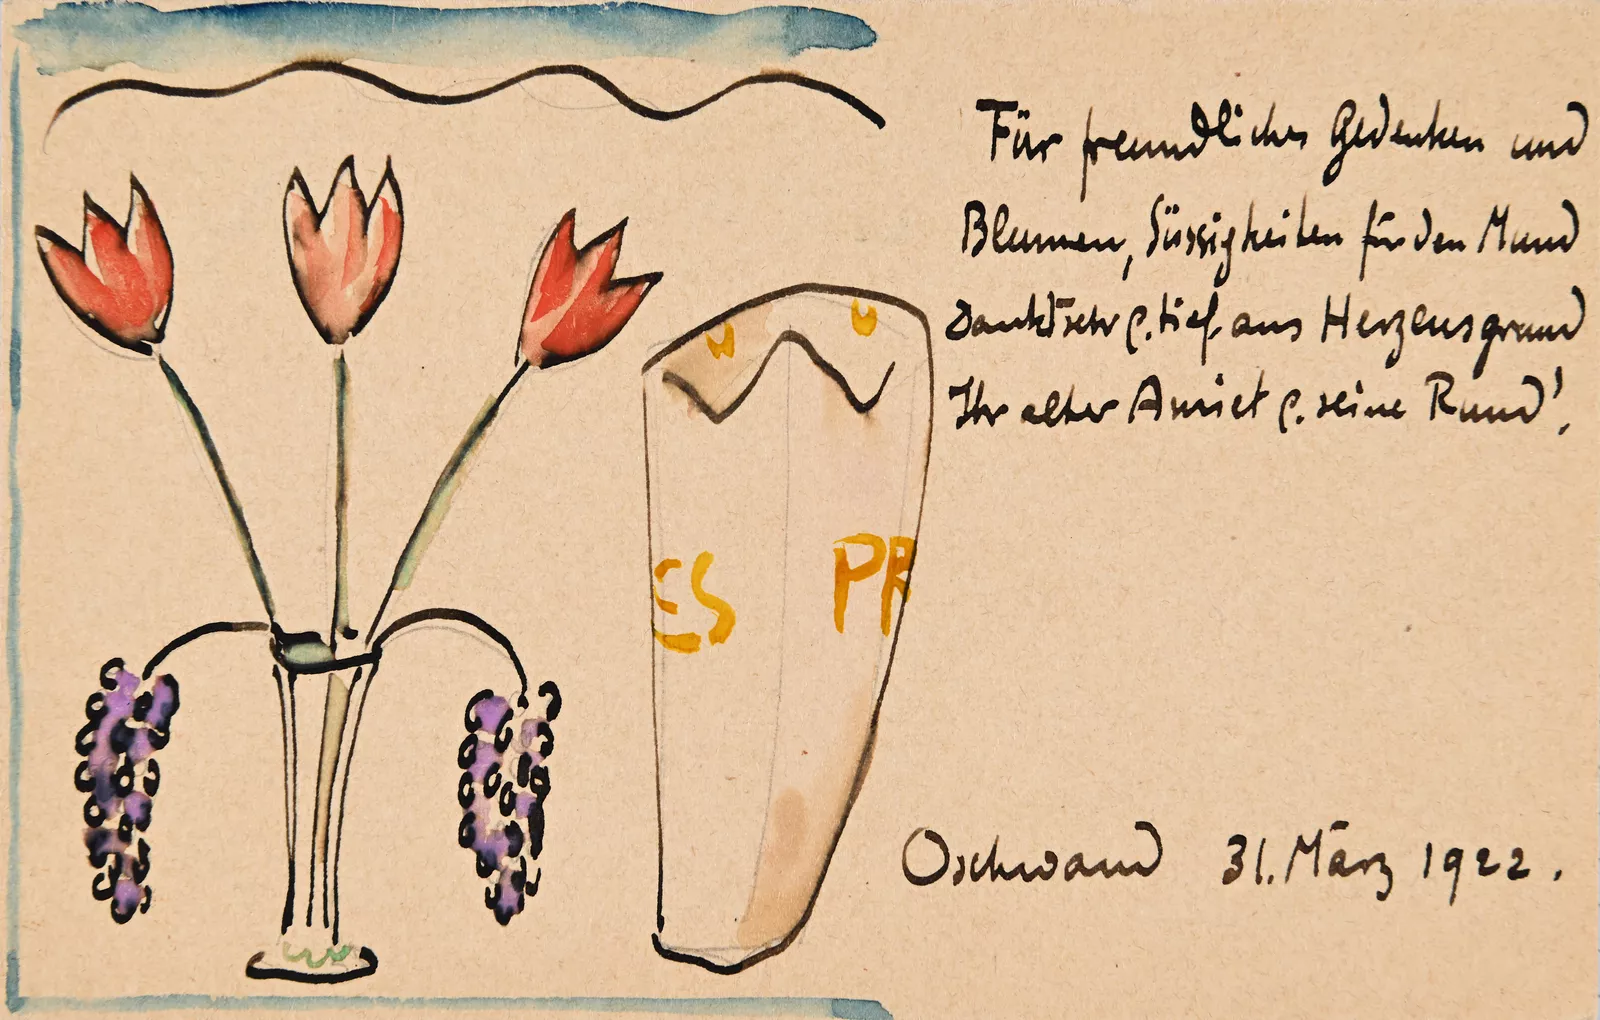 Für freundliches Gedenken und
Blumen, Süssigkeiten für den Mund
dankt sehr & tief, aus Herzensgrund
Ihr alter Amiet & seine Rund'.
ES PR
Oschwand 31. März 1922.